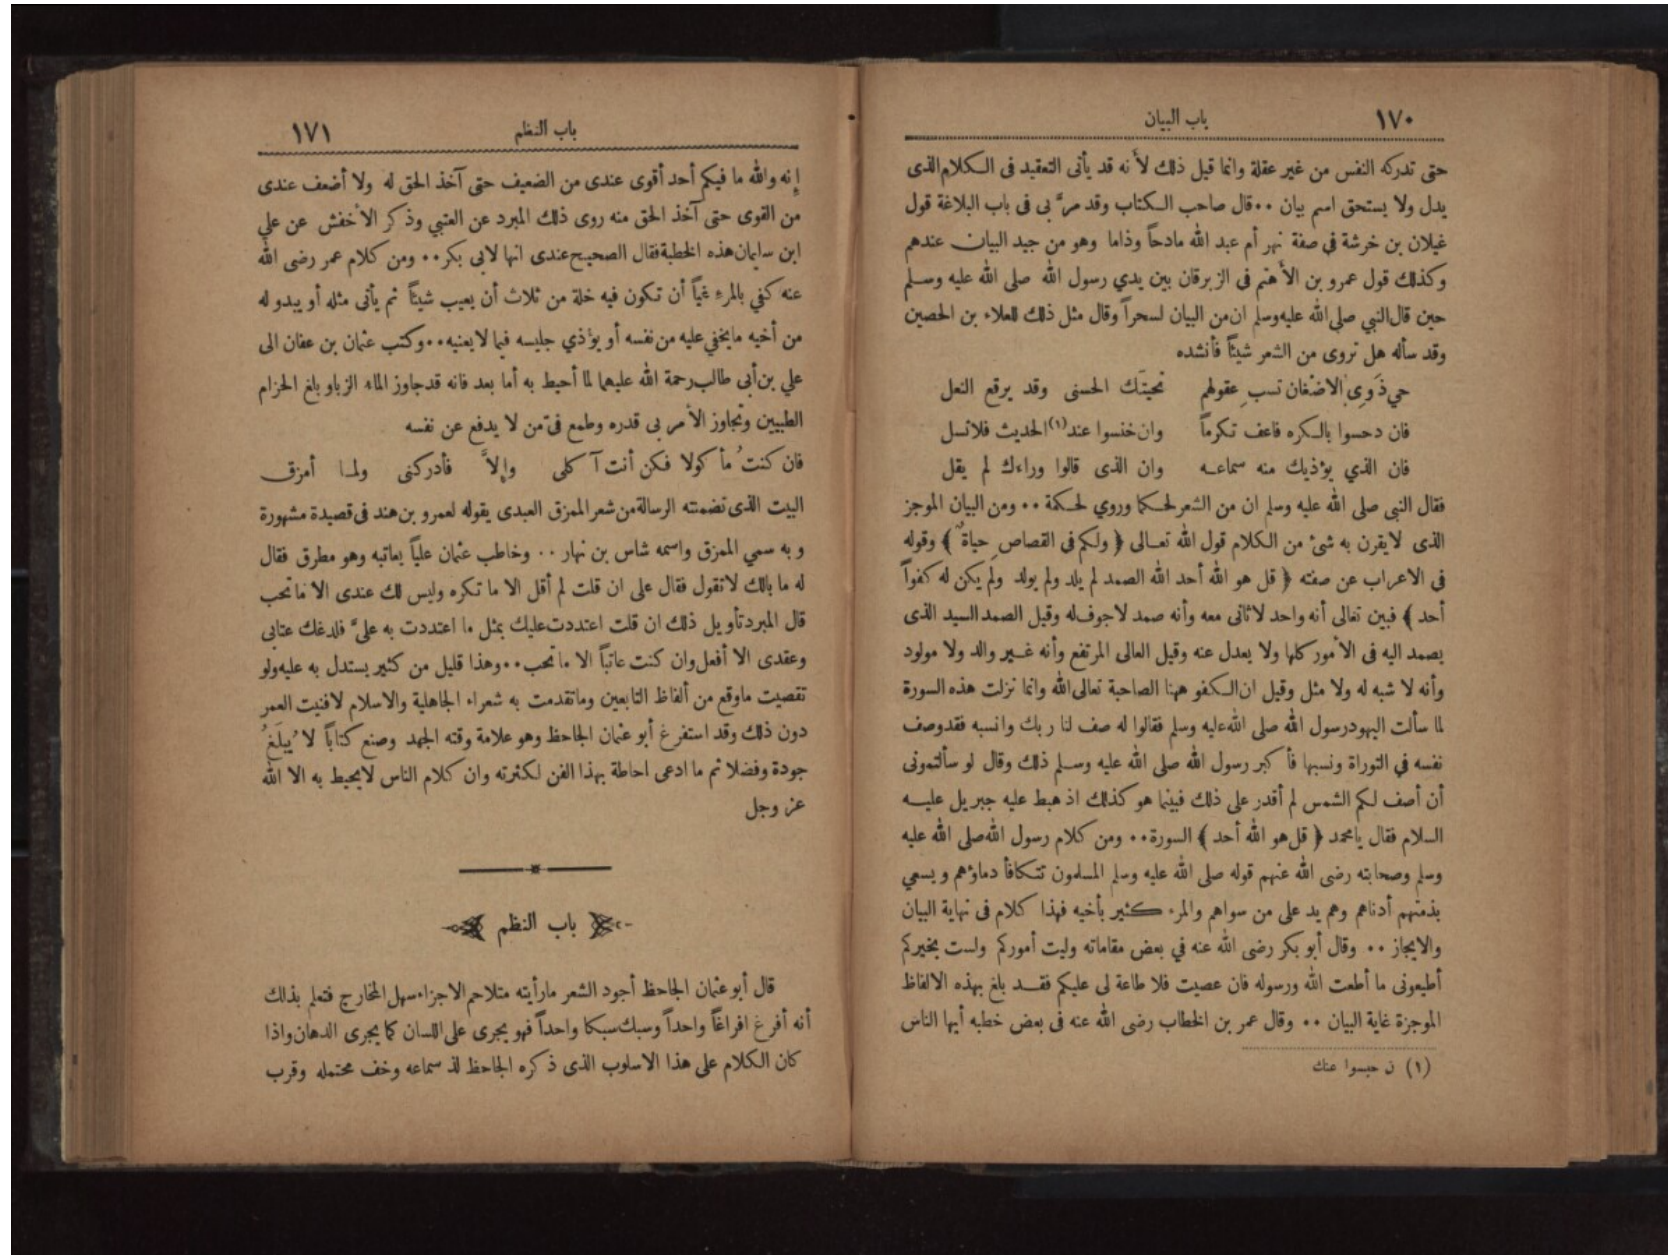 ١٧٠
باب البيان
حتى تدركه النفس من غير عقلة وانما قيل ذلك لأنه قد يأتى التعقيد فى الكلام الذى
يدل ولا يستحق اسم بيان ٠٠ قال صاحب الكتاب وقد مرَّ بى فى باب البلاغة قول
غيلان بن خرشة في صفة نهر أم عبد الله مادحاً وذاما وهو من جيد البيان عندهم
وكذلك قول عمرو بن الأهتم فى الزبرقان بين يدي رسول الله صلى الله عليه وسلم
حين قال النبي صلى الله عليه وسلم ان من البيان لسحراً وقال مثل ذلك للعلاء بن الحصين
وقد سأله هل تروى من الشعر شيئاً فأنشده
حي ذَوِى الاضْغان تسب عقولهم تحيتَك الحسنى وقد يرقع النعل
فان دحسوا بالكره فاعف تكرماً وان خنسوا عند(١) الحديث فلا تسل
فان الذي يؤذيك منه سماعه وان الذى قالوا وراءك لم يقل
فقال النبى صلى الله عليه وسلم ان من الشعر لحكما وروي لحكمة ٠٠ ومن البيان الموجز
الذى لا يقرن به شئ من الكلام قول الله تعالى ﴿ ولكم فى القصاص حياةٌ ﴾ وقوله
فى الاعراب عن صفته ﴿ قل هو الله أحد الله الصمد لم يلد ولم يولد ولم يكن له كفواً
أحد ﴾ فبين تعالى أنه واحد لا ثانى معه وأنه صمد لا جوف له وقيل الصمد السيد الذى
يصمد اليه فى الأمور كلها ولا يعدل عنه وقيل العالى المرتفع وأنه غير والد ولا مولود
وأنه لا شبه له ولا مثل وقيل ان الكفو ههنا الصاحبة تعالى الله وانما نزلت هذه السورة
لما سألت اليهود رسول الله صلى الله عليه وسلم فقالوا له صف لنا ربك وانسبه فقد وصف
نفسه في التوراة ونسبها فأكبر رسول الله صلى الله عليه وسلم ذلك وقال لو سألتمونى
أن أصف لكم الشمس لم أقدر على ذلك فبينما هو كذلك اذ هبط عليه جبريل عليه
السلام فقال يا محمد ﴿ قل هو الله أحد ﴾ السورة ٠٠ ومن كلام رسول الله صلى الله عليه
وسلم وصحابته رضى الله عنهم قوله صلى الله عليه وسلم المسلمون تتكافأ دماؤهم ويسعي
بذمتهم أدناهم وهم يد على من سواهم والمرء كثير بأخيه فهذا كلام فى نهاية البيان
والايجاز ٠٠ وقال أبو بكر رضى الله عنه في بعض مقاماته وليت أموركم ولست بخيركم
أطيعونى ما أطعت الله ورسوله فان عصيت فلا طاعة لى عليكم فقد بلغ بهذه الالفاظ
الموجزة غاية البيان ٠٠ وقال عمر بن الخطاب رضى الله عنه فى بعض خطبه أيها الناس
(١) ن حبسوا عنك
باب النظم
١٧١
إنه والله ما فيكم أحد أقوى عندى من الضعيف حتى آخذ الحق له ولا أضعف عندى
من القوى حتى آخذ الحق منه روى ذلك المبرد عن العتبي وذكر الأخفش عن علي
ابن سليمان هذه الخطبة فقال الصحيح عندى انها لابى بكر ٠٠ ومن كلام عمر رضى الله
عنه كفي بالمرء غياً أن تكون فيه خلة من ثلاث أن يعيب شيئاً ثم يأتى مثله أو يبدو له
من أخيه ما يخفي عليه من نفسه أو يؤذي جليسه فيما لا يعنيه ٠٠ وكتب عثمان بن عفان الى
علي بن أبي طالب رحمة الله عليهما لما أحيط به أما بعد فانه قد جاوز الماء الزبا وبلغ الحزام
الطبيين وتجاوز الأمر بى قدره وطمع فيّ من لا يدفع عن نفسه
فان كنتُ مأكولا فكن أنت آكلى وإلاَّ فأدركنى ولما أمزق
البيت الذى تضمنته الرسالة من شعر الممزق العبدى يقوله لعمرو بن هند فى قصيدة مشهورة
وبه سمي الممزق واسمه شاس بن نهار ٠٠ وخاطب عثمان علياً يعاتبه وهو مطرق فقال
له ما بالك لا تقول فقال على ان قلت لم أقل الا ما تكره وليس لك عندى الا ما تحب
قال المبرد تأويل ذلك ان قلت اعتددت عليك بمثل ما اعتددت به عليَّ فلدغك عتابى
وعقدى الا أفعل وان كنت عاتباً الا ما تحب ٠٠ وهذا قليل من كثير يستدل به عليه ولو
تقصيت ما وقع من ألفاظ التابعين وما تقدمت به شعراء الجاهلية والاسلام لافنيت العمر
دون ذلك وقد استفرغ أبو عثمان الجاحظ وهو علامة وقته الجهد وصنع كتاباً لا يُبلَغُ
جودة وفضلا ثم ما ادعى احاطة بهذا الفن لكثرته وان كلام الناس لا يحيط به الا الله
عز وجل
باب النظم
قال أبو عثمان الجاحظ أجود الشعر ما رأيته متلاحم الاجزاء سهل المخارج فتعلم بذلك
أنه أفرغ افراغاً واحداً وسبك سبكا واحداً فهو يجرى على اللسان كما يجرى الدهان واذا
كان الكلام على هذا الاسلوب الذى ذكره الجاحظ لذ سماعه وخف محتمله وقرب